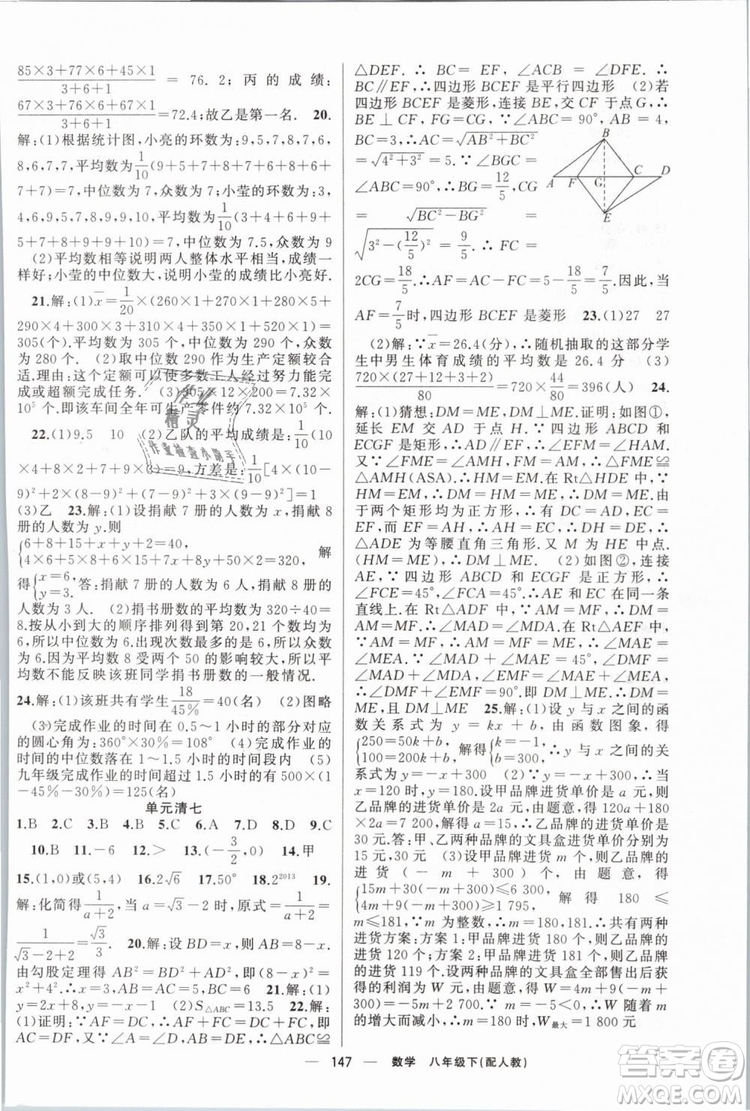 85×3+77×6+45×1
———————— = 76.2；丙的成绩：
3+6+1
67×3+76×6+67×1
———————— =72.4；故乙是第一名. 20.
3+6+1
解：(1)根据统计图，小亮的环数为：9，5，7，8，7，6，
8，6，7，7，平均数为1/10(9+5+7+8+7+6+8+6+
7+7)=7，中位数为7，众数为7. 小莹的环数为：3，
4，6，7，7，8，8，9，9，9，平均数为1/10(3+4+6+7+7
+8+8+9+9+9)=7，中位数为7.5，众数为9
(2)平均数相等说明两人整体水平相当，成绩一
样好；小莹的中位数大，说明小莹的成绩比小亮好.
21.解：(1)x̄=1/20×(260×1+270×1+280×5
+290×4+300×3+310×4+350×1+520×1)=
305(个). 中位数为290个，
众数是280个. (2)取中位数290作为生产定额较合
适，理由：这个定额可以使多数工人经过努力能完
成或超额完成任务. (3)305×12×20=7.32×
10⁵个，即该车间全年可生产零件约7.32×10⁵个
22.(1)9.5 10 (2)乙队的平均成绩是：1/10×
(10×4+8×2+7+9×3)=9，方差是：1/10[4×(10
-9)²+2×(8-9)²+(7-9)²+3×(9-9)²]=1
(3)乙 23.解：(1)设捐献7册的人数为x，捐献8
册的人数为y.则
{6+8+15+x+y+2=40，
{4×6+5×8+6×15+7x+8y+50×2=320， 解
得{x=6，
{y=3. 答：捐献7册的人数为6，捐献8册的人数
为3. (2)捐书册数的平均数为320÷40=
8.按从小到大的顺序排列得到第20，21个数均为
6，所以中位数为6.出现次数最多的是6，所以众
数为6.因为平均数8受两个50的影响较大，所以
平均数不能反映该班同学捐书册数的一般情况.
24.解：(1)该班共有学生18/45%=40(名) (2)图略
(3)完成作业的时间在0.5～1小时的部分对应
的圆心角为：30%×360°=108° (4)完成作业的时
间的中位数落在1～1.5小时的时间段内 (5)
九年级完成作业的时间超过1.5小时的有500×(1
-45%-30%)=125(名)
单元清七
1.B 2.C 3.C 4.C 5.C 6.A 7.D 8.D 9.C
10.B 11.-6 12.＞ 13.(-3/2，0) 14.甲
15.(1，0)或(5，4) 16.2√5 17.50° 18.2²⁰¹³ 19.
解：化简得1/(a+2)，当a=√3-2时，原式=1/(a+2)=
1/(√3-2+2)=√3/3 20.解：设BD=x，则AB=8-x，
由勾股定理得AB²=BD²+AD²，即(8-x)²=
x²+4².∴x=3.∴AB=AC=5 21.解：(1)
y=2x+8，y=-1/2x+2 (2)S△ABC=13.5 22.解：
(1)证明：∵AF=DC，∴AF+FC=DC+FC.
即AC=DF.又∵∠A=∠D，AB=DE，∴△ABC≌
△DEF. ∴BC=EF，∠ACB=∠DFE. ∴
BC∥EF，∴四边形BCEF是平行四边形 (2)若
四边形BCEF是菱形，连接BE，交CF于点G，∴
BE⊥CF，FG=CG. ∵∠ABC=90°，AB=4，
BC=3，∴AC=√(AB²+BC²)
=√(4²+3²)=5. ∵∠BGC=
∠ABC=90°，∴BG=12/5，
∴CG=√(BC²-BG²)=
√(3²-(12/5)²)=9/5，∴FC=
2CG=18/5，∴AF=AC-FC=5-18/5=7/5，∴当
AF=7/5时，四边形BCEF是菱形 23.(1)27 27
(2)解：∵x̄=26.4(分)，∴随机抽取的这部分学
生中男生体育成绩的平均数是26.4分 (3)
720×(27+12+3+2)/80=720×44/80=396(人) 24.
解：(1)猜想：DM=ME，DM⊥ME.证明：如图①，
延长EM交AD于点H，∵四边形ABCD和
ECGF是矩形，∴AD∥EF，∴∠EFM=∠HAM.
又∵∠FME=∠AMH，FM=AM，∴△FME≌
△AMH(ASA).∴HM=EM.在Rt△HDE中，∵
HM=EM，∴DM=HM=ME，∴DM=ME.由
于两个矩形均为正方形，∴AD=CD，CE=EF，
而EF=AH，∴EC=AH，∴DH=DE，∴
△DHE为等腰直角三角形，又M为HE中点，
∴DM⊥ME (2)如图②，连接AE，
∵四边形ABCD和ECGF是正方形，∴
∠FCE=45°，∠FCA=45°，∴AE和EC在同一条
直线上.在Rt△ADF中，AM=MF，∴DM=
AM=MF，∴∠MAD=∠MDA.在Rt△AEF中，
∵AM=MF，∴AM=MF=ME，∴∠MAE=
∠MEA，∴DM=ME.
∵∠DMF=∠MAD+∠MDA=2∠MAD，
∠FME=∠MAE+∠MEA=2∠MAE，
∴∠DMF+∠FME=∠DME=90°，
即DM⊥ME，∴DM=ME，DM⊥ME 25.解：(1)设y与x之间的函
数关系式为y=kx+b，由函数图象，得
{250=50k+b，
{100=200k+b， 解得{k=-1，
{b=300. ∴y与x之间的函数关
系式为y=-x+300 (2)∵y=-x+300；∴当
x=120时，y=180.设甲品牌进货单价是a元，则
乙品牌的进货单价是2a元，由题意，得120a+180×
2a=7 200，解得a=15，∴乙品牌的进货单价是
30元.答：甲、乙两种品牌的文具盒进货单价分别
为15元，30元 (3)设甲品牌进货m个，则乙品牌的
进货(-m+300)个，由题意，得
{15m+30(-m+300)≤6 300，
{4m+9(-m+300)≥1 795， 解得180≤
m≤181，∵m为整数，∴m=180，181.∴共有两种
进货方案：方案1：甲品牌进货180个，则乙品牌的
进货120个；方案2：甲品牌进货181个，则乙品牌的
进货119个.设两种品牌的文具盒全部售出后获得
的利润为W元，由题意，得W=4m+9(-m+
300)=-5m+2 700.∵k=-5＜0，∴W随着m
的增大而减小，∴m=180时，W最大=1 800元
B
A F G C D
E
— 147 — 数学 八年级下(配人教)
精灵
作业检查小助手